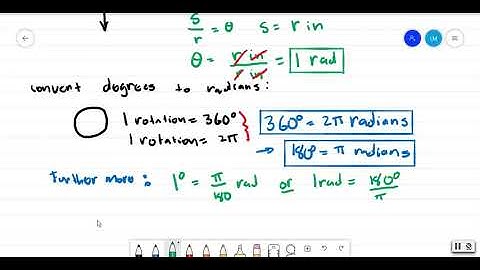 s/r = θ s = r in
θ = r in / r in = 1 rad
convert degrees to radians:
1 rotation = 360° 360° = 2π radians
1 rotation = 2π
→ 180° = π radians
Further more: 1° = π/180 rad or 1 rad = 180°/π